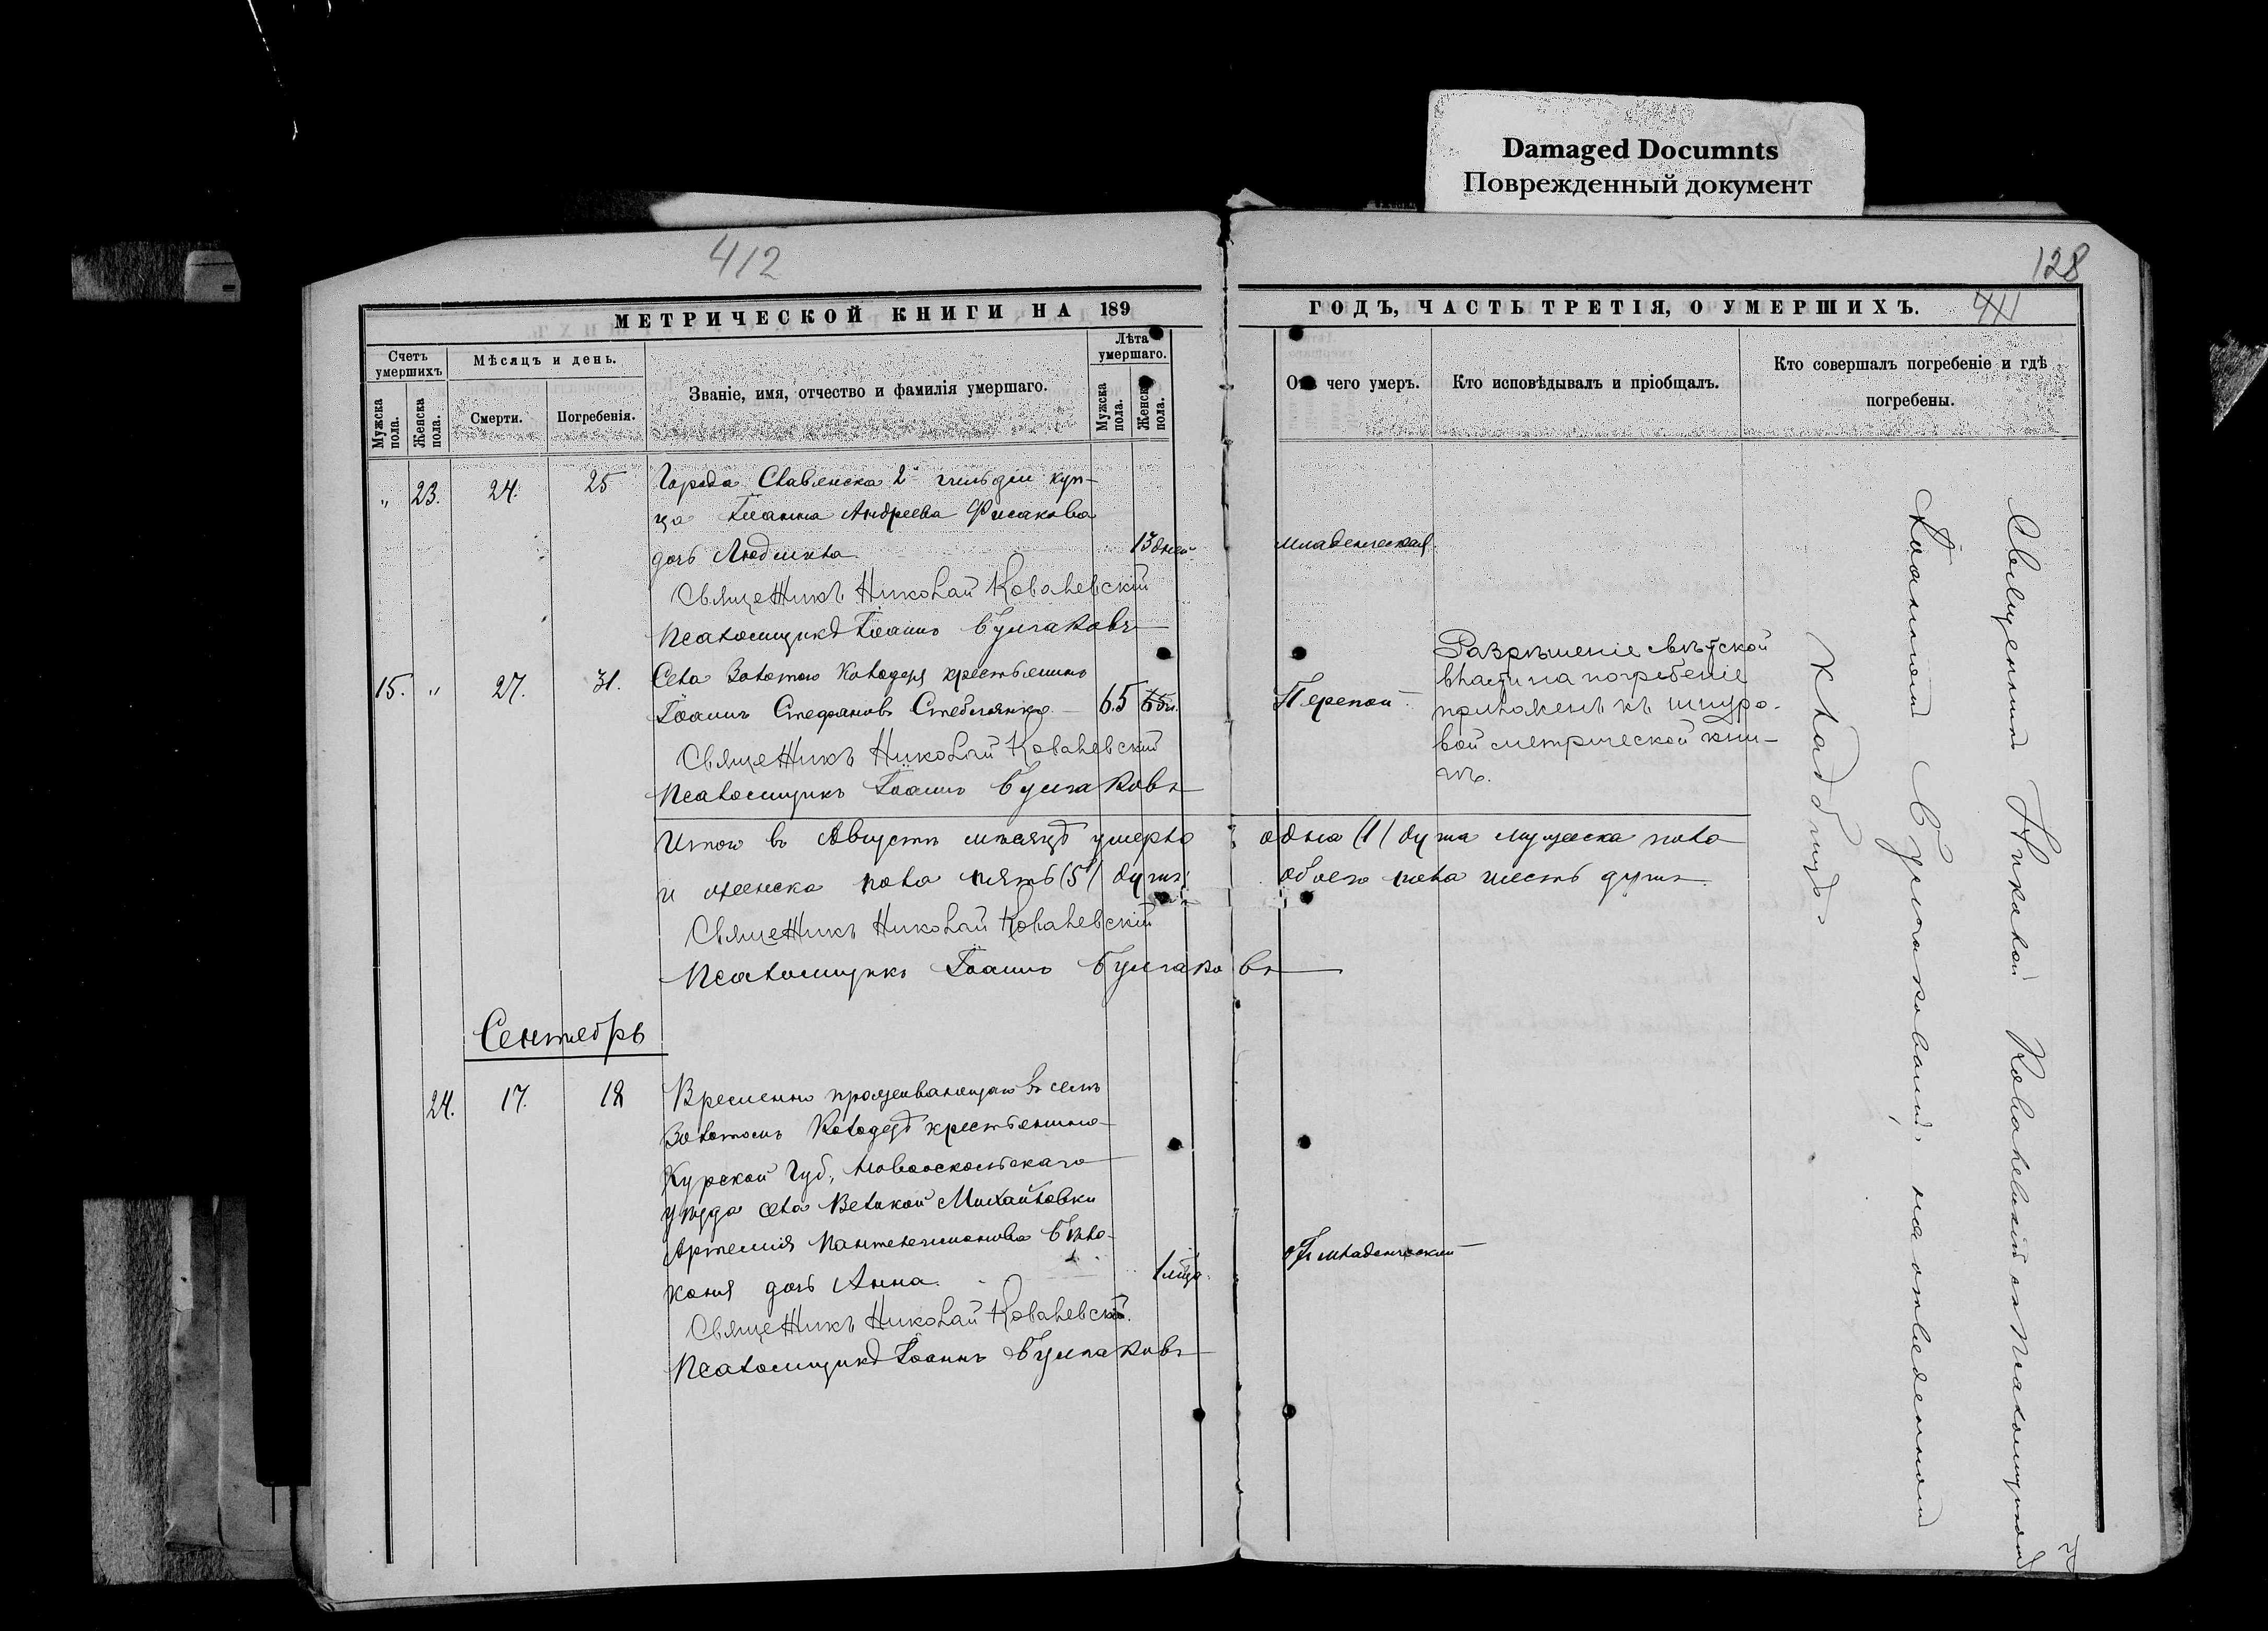 Damaged Documnts
Поврежденный документ
412
128
411
МЕТРИЧЕСКОЙ КНИГИ НА 189
ГОДЪ, ЧАСТЬ ТРЕТІЯ, О УМЕРШИХЪ.
Счетъ умершихъ
Мѣсяцъ и день.
Званіе, имя, отчество и фамилія умершаго.
Лѣта умершаго.
Мужска пола.
Женска пола.
Смерти.
Погребенія.
Мужска пола.
Женска пола.
Отъ чего умеръ.
Кто исповѣдывалъ и пріобщалъ.
Кто совершалъ погребеніе и гдѣ погребены.
„ 23. 24. 25 Города Славянска 2й гильдіи куп-
ца Іоанна Андреева Фисакова
дочь Людмила 13 дней младенческая
Священникъ Николай Ковалевскій
Псаломщикъ Іоаннъ Булгаковъ
15. „ 27. 31. Села Золотого Колодезя крестьянинъ
Іоаннъ Стефановъ Стеблянко 65 Перепой
Разрѣшеніе свѣтской
власти на погребеніе
приложенъ къ шнуро-
вой метрической кни-
гѣ.
Священникъ Николай Ковалевскій
Псаломщикъ Іоаннъ Булгаковъ
Итого въ Августѣ мѣсяцѣ умерло одна (1) душа мужеска пола
и женска пола пять (5) душъ обоего пола шесть душъ.
Священникъ Николай Ковалевскій
Псаломщикъ Іоаннъ Булгаковъ
Сентябрь
24. 17. 18 Временно проживающаго въ селѣ
Золотомъ Колодезѣ крестьянина
Курской Губ., Новооскольскаго
уѣзда села Великой Михайловки
Артемія Пантелеимонова Бѣло-
коня дочь Анна 1 младенческой
Священникъ Николай Ковалевскій
Псаломщикъ Іоаннъ Булгаковъ
Священникъ Николай Ковалевскій съ Псаломщикомъ
Іоанномъ Булгаковымъ на отведенномъ
кладбищѣ